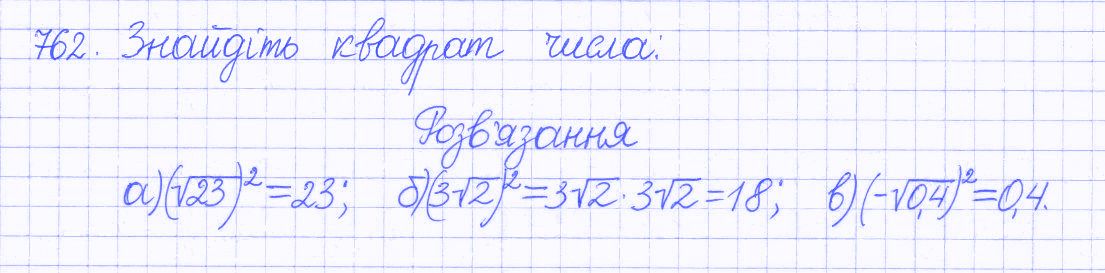 762. Знайдіть квадрат числа:
Розв'язання
а) (√23)² = 23; б) (3√2)² = 3√2 · 3√2 = 18; в) (-√0,4)² = 0,4.